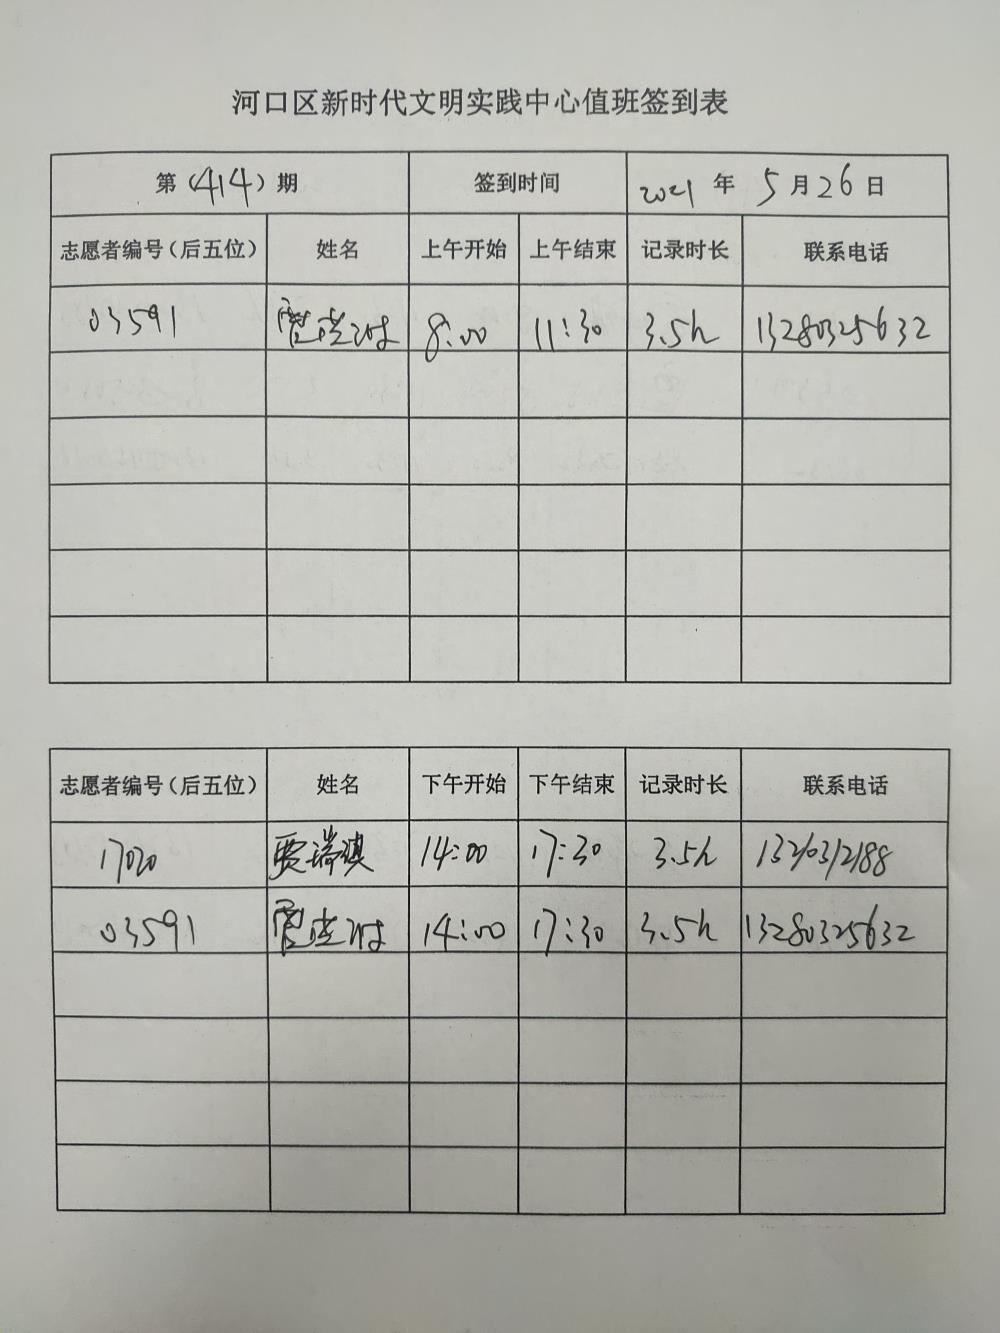 河口区新时代文明实践中心值班签到表
第（414）期 签到时间 2021 年 5 月 26 日
志愿者编号（后五位） 姓名 上午开始 上午结束 记录时长 联系电话
03591 8:00 11:30 3.5h 13280325632
志愿者编号（后五位） 姓名 下午开始 下午结束 记录时长 联系电话
17020 贾瑞祺 14:00 17:30 3.5h
03591 14:00 17:30 3.5h 13280325632